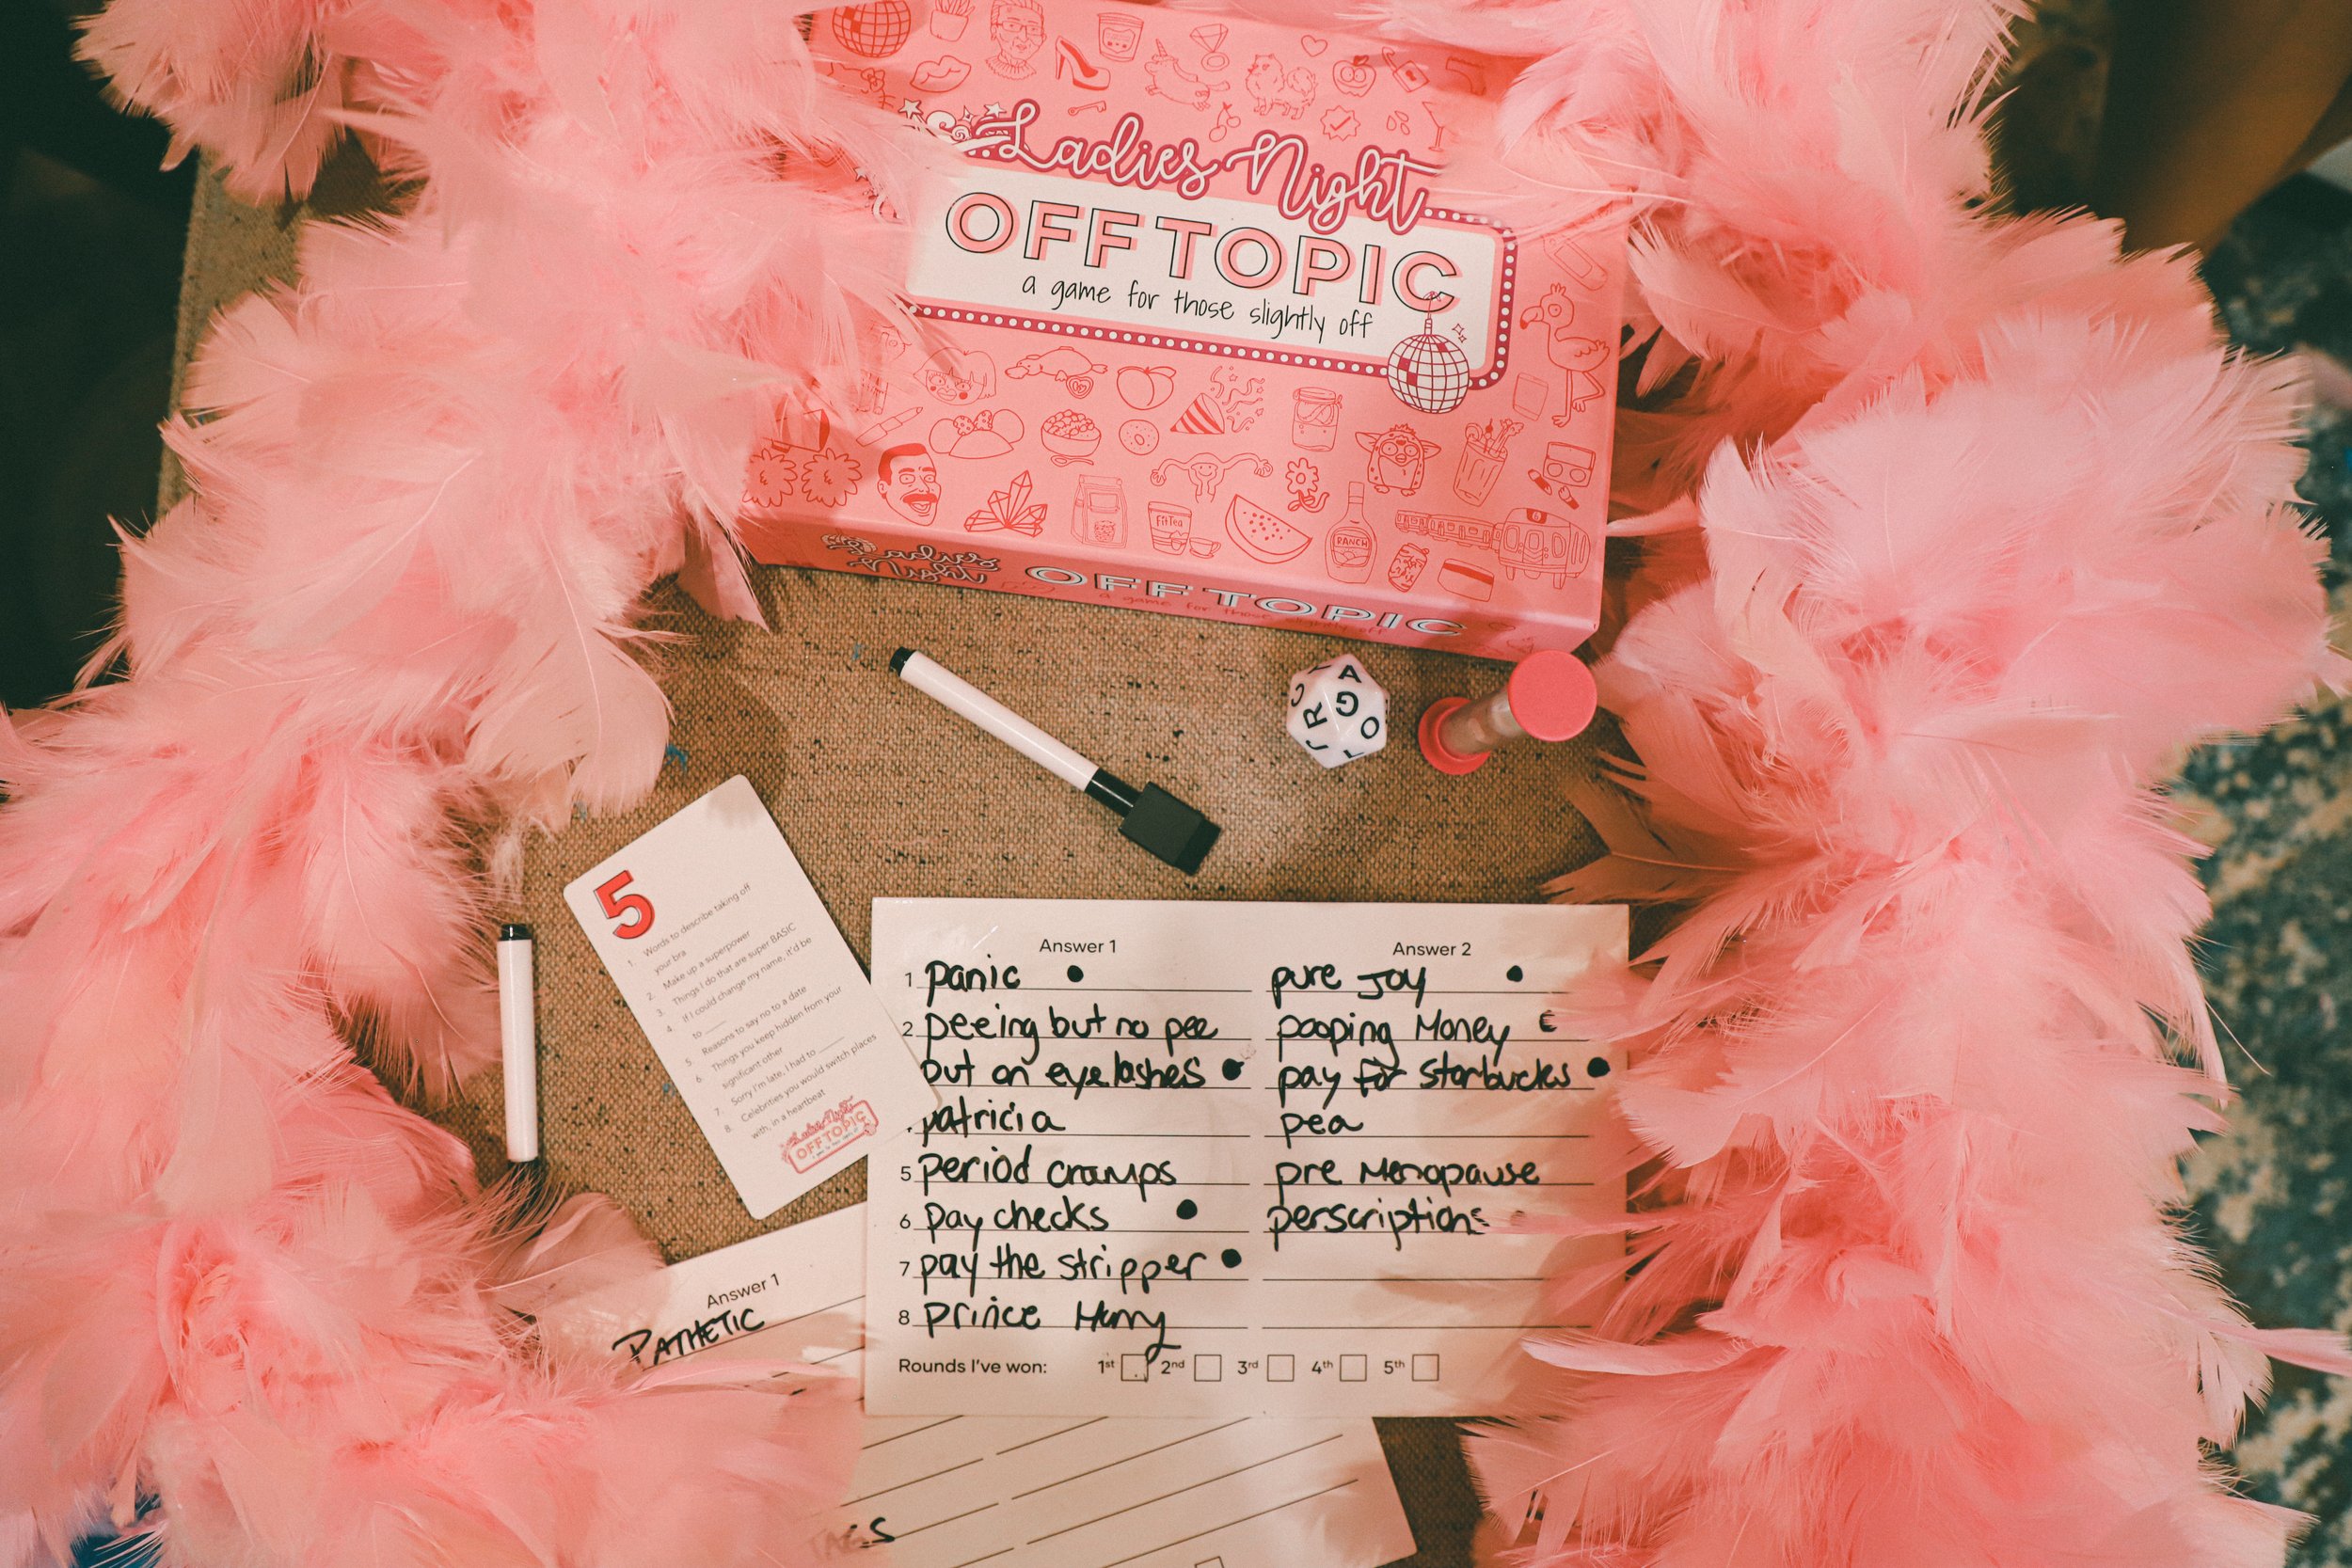 Ladies Night
OFF TOPIC
a game for those slightly off
fitTea
RANCH
Ladies Night OFF TOPIC
a game for those slightly off
A
G
R
C
O
5
1. Words to describe taking off
your bra
2. Make up a superpower
3. Things I do that are super BASIC
4. If I could change my name, it'd be
to ____
5. Reasons to say no to a date
6. Things you keep hidden from your
significant other
7. Sorry I'm late, I had to ____
8. Celebrities you would switch places
with, in a heartbeat
Ladies Night
OFF TOPIC
Answer 1 Answer 2
1 panic pure Joy
2 peeing but no pee pooping Money
put on eyelashes pay for Starbucks
patricia pea
5 period cramps pre Menopause
6 pay checks perscriptions
7 pay the stripper
8 prince Harry
Rounds I've won: 1st 2nd 3rd 4th 5th
Answer 1
PATHETIC